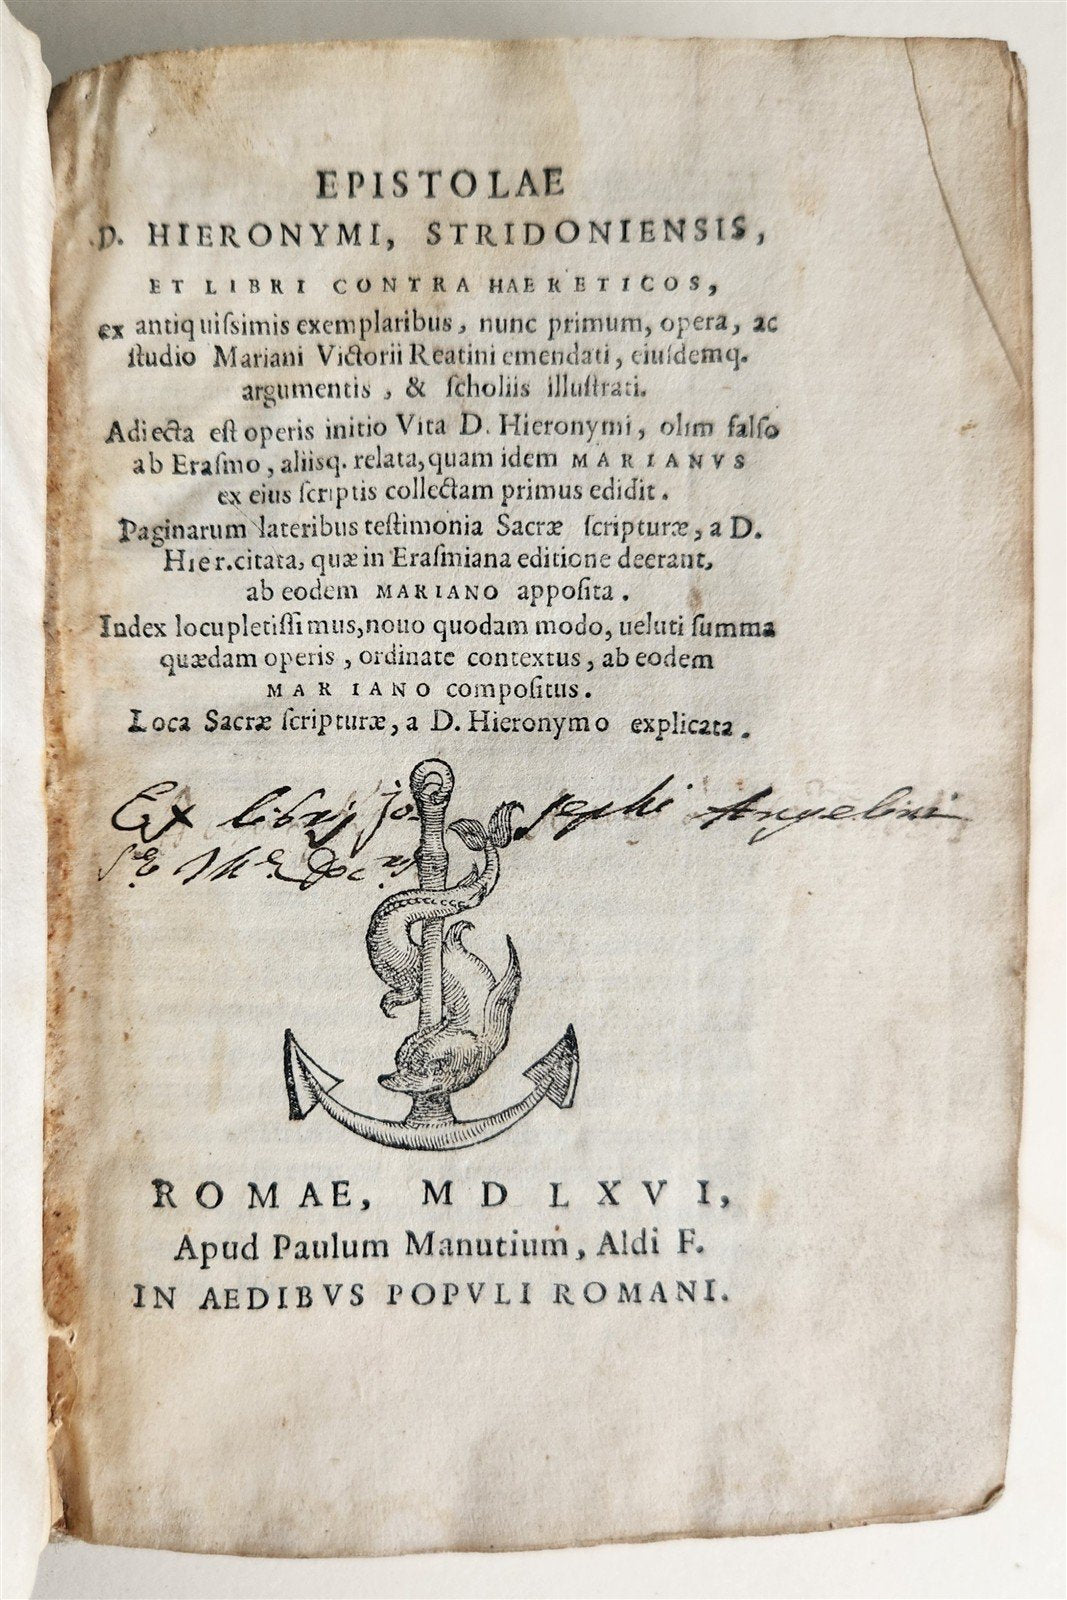 EPISTOLAE
D. HIERONYMI, STRIDONIENSIS,
ET LIBRI CONTRA HAERETICOS,
ex antiquiſsimis exemplaribus, nunc primum, opera, ac
ſtudio Mariani Victorii Reatini emendati, eiuſdemq.
argumentis, & ſcholiis illuſtrati.
Adiecta eſt operis initio Vita D. Hieronymi, olim falſo
ab Eraſmo, aliisq. relata, quam idem MARIANVS
ex eius ſcriptis collectam primus edidit.
Paginarum lateribus teſtimonia Sacræ ſcripturæ, a D.
Hier. citata, quæ in Eraſmiana editione deerant,
ab eodem MARIANO appoſita.
Index locupletiſſimus, nouo quodam modo, ueluti ſumma
quædam operis, ordinate contextus, ab eodem
MARIANO compoſitus.
Loca Sacræ ſcripturæ, a D. Hieronymo explicata.
Ex libris Josephi Angelini
ROMAE, MDLXVI,
Apud Paulum Manutium, Aldi F.
IN AEDIBVS POPVLI ROMANI.